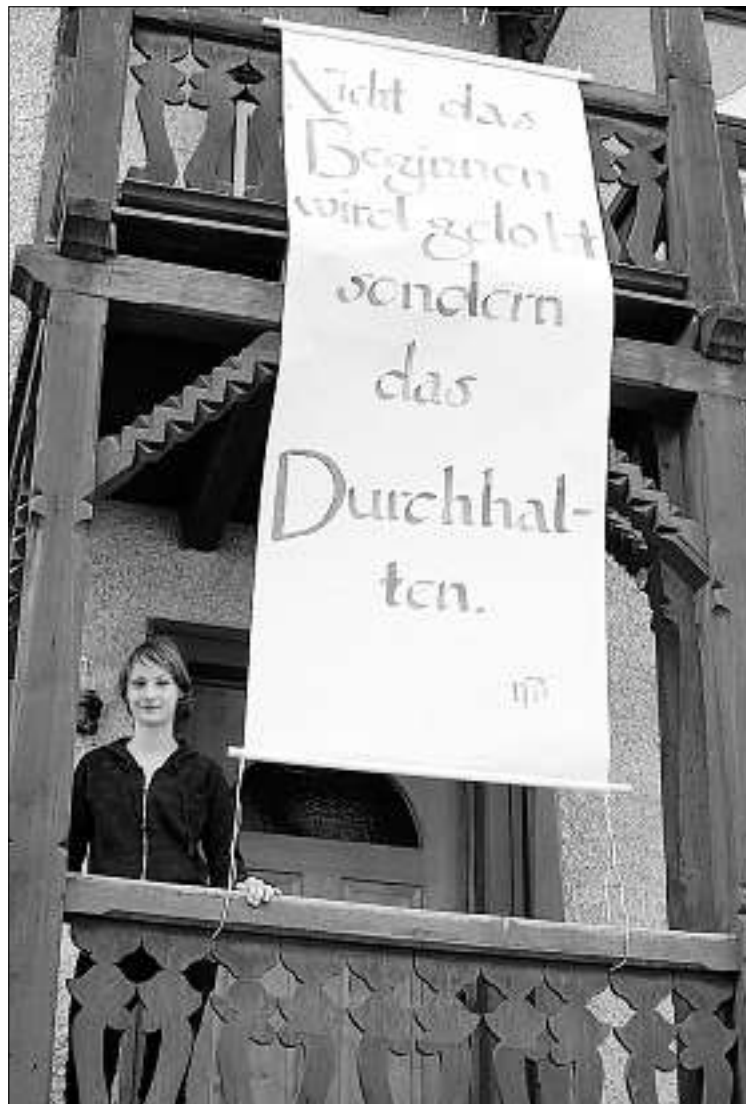 Nicht das
Beginnen
wird gelobt
sondern
das
Durchhal-
ten.